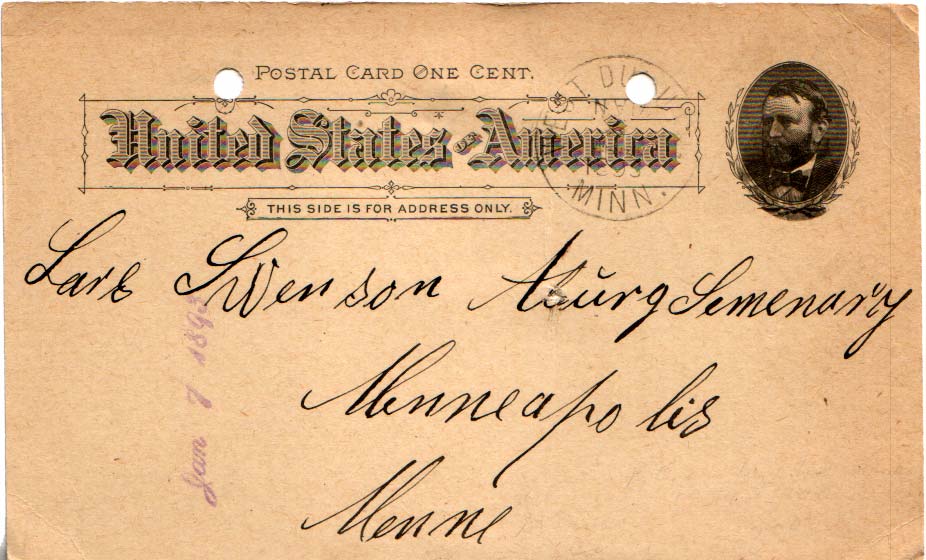 POSTAL CARD ONE CENT.
United States of America
THIS SIDE IS FOR ADDRESS ONLY.
MINN.
Lars Swenson Aburg Semenary
Menneapolis
Menne
Jan 7 1893